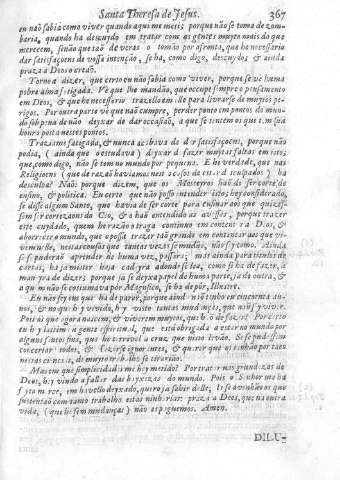 Santa Theresa de Jesus. 367
en não sabia como viver quando aqui me meti; porque não se toma de zom-
baria, quando ha descuydo em tratar com as gentes muyto mais do que
merecem, senão que taõ de veras o tomão por afronta, que he necessario
dar satisfaçoens de vossa intenção, se ha, como digo, descuydo; & ainda
praza a Deos o creaõ.
Torno a dizer, que certo eu não sabia como viver, porque se vè huma
pobre alma fatigada. Vè que lhe mandão, que occupe sempre o pensamento
em Deos, & que he necessario trazello nelle para livrarse de muytos peri-
gos. Por outra parte vè que não cumpre, perder ponto em pontos do mun-
do sob pena de não deyxar de dar occasiaõ, a que se tentem os que tem sua
honra posta nestes pontos.
Traziame fatigada, & nunca acabava de dar satisfaçoens, porque não
podia, (ainda que o estudava) deyxar de fazer muytas faltas em isto,
que, como digo, não se tem no mundo por pequena. E he verdade, que nas
Religioens (que de razaõ haviamos nestes casos de estar desculpados) ha
desculpa? Não: porque dizem, que os Mosteyros haõ de ser corte de
ensino, & politica. Eu certo que não posso entender isto;
se disse algum Santo, que havia de ser corte para ensinar aos que quizes-
sem ser cortezaons do Ceo, & o haõ entendido às avessas, porque trazer
este cuydado, quem he razão o traga continuo em contentar a Deos, &
aborrecer o mundo, que o possa trazer taõ grande em contentar aos que vi-
vem nelle, nestas cousas que tantas vezes se mudão, não sey como. Ainda
se se puderaõ aprender de huma vez, passára; mas ainda para titulos de
cartas, ha já mister haja cadeyra adonde se lea, como se ha de fazer, a
maneyra de dizer; porque já se deyxa papel de huma parte, já de outra, &
a quem não se costumava pòr Magnifico, se ha de pòr, Illustre.
Eu não sey em que ha de parar, porque ainda não tenho eu cincoenta an-
nos, & no que hey vivido, hey visto tantas mudanças, que não sey viver.
Pois os que agora nascem, & viverem muytos, que haõ de fazer? Por certo
eu hey lastima a gente espiritual, que está obrigada a estar no mundo por
alguns santos fins, que he terrivel a cruz, que nisso levão. Se se pudessem
concertar todos, & fazerse ignorantes, & querer que os tenhão por taes
nestas sciencias, de muyto trabalho se tirarião.
Mas em que simplicidades me hey metido? Por tratar nas grandezas de
Deos, hey vindo a fallar das bayxezas do mundo. Pois o Senhor me ha
feyto merce, em havello deyxado, quero já sahir delle, lá se avenhão os que
sustentaõ com tanto trabalho estas ninharias: praza a Deos, que na outra
vida, (que he sem mudanças) não as paguemos. Amen.
DILU-